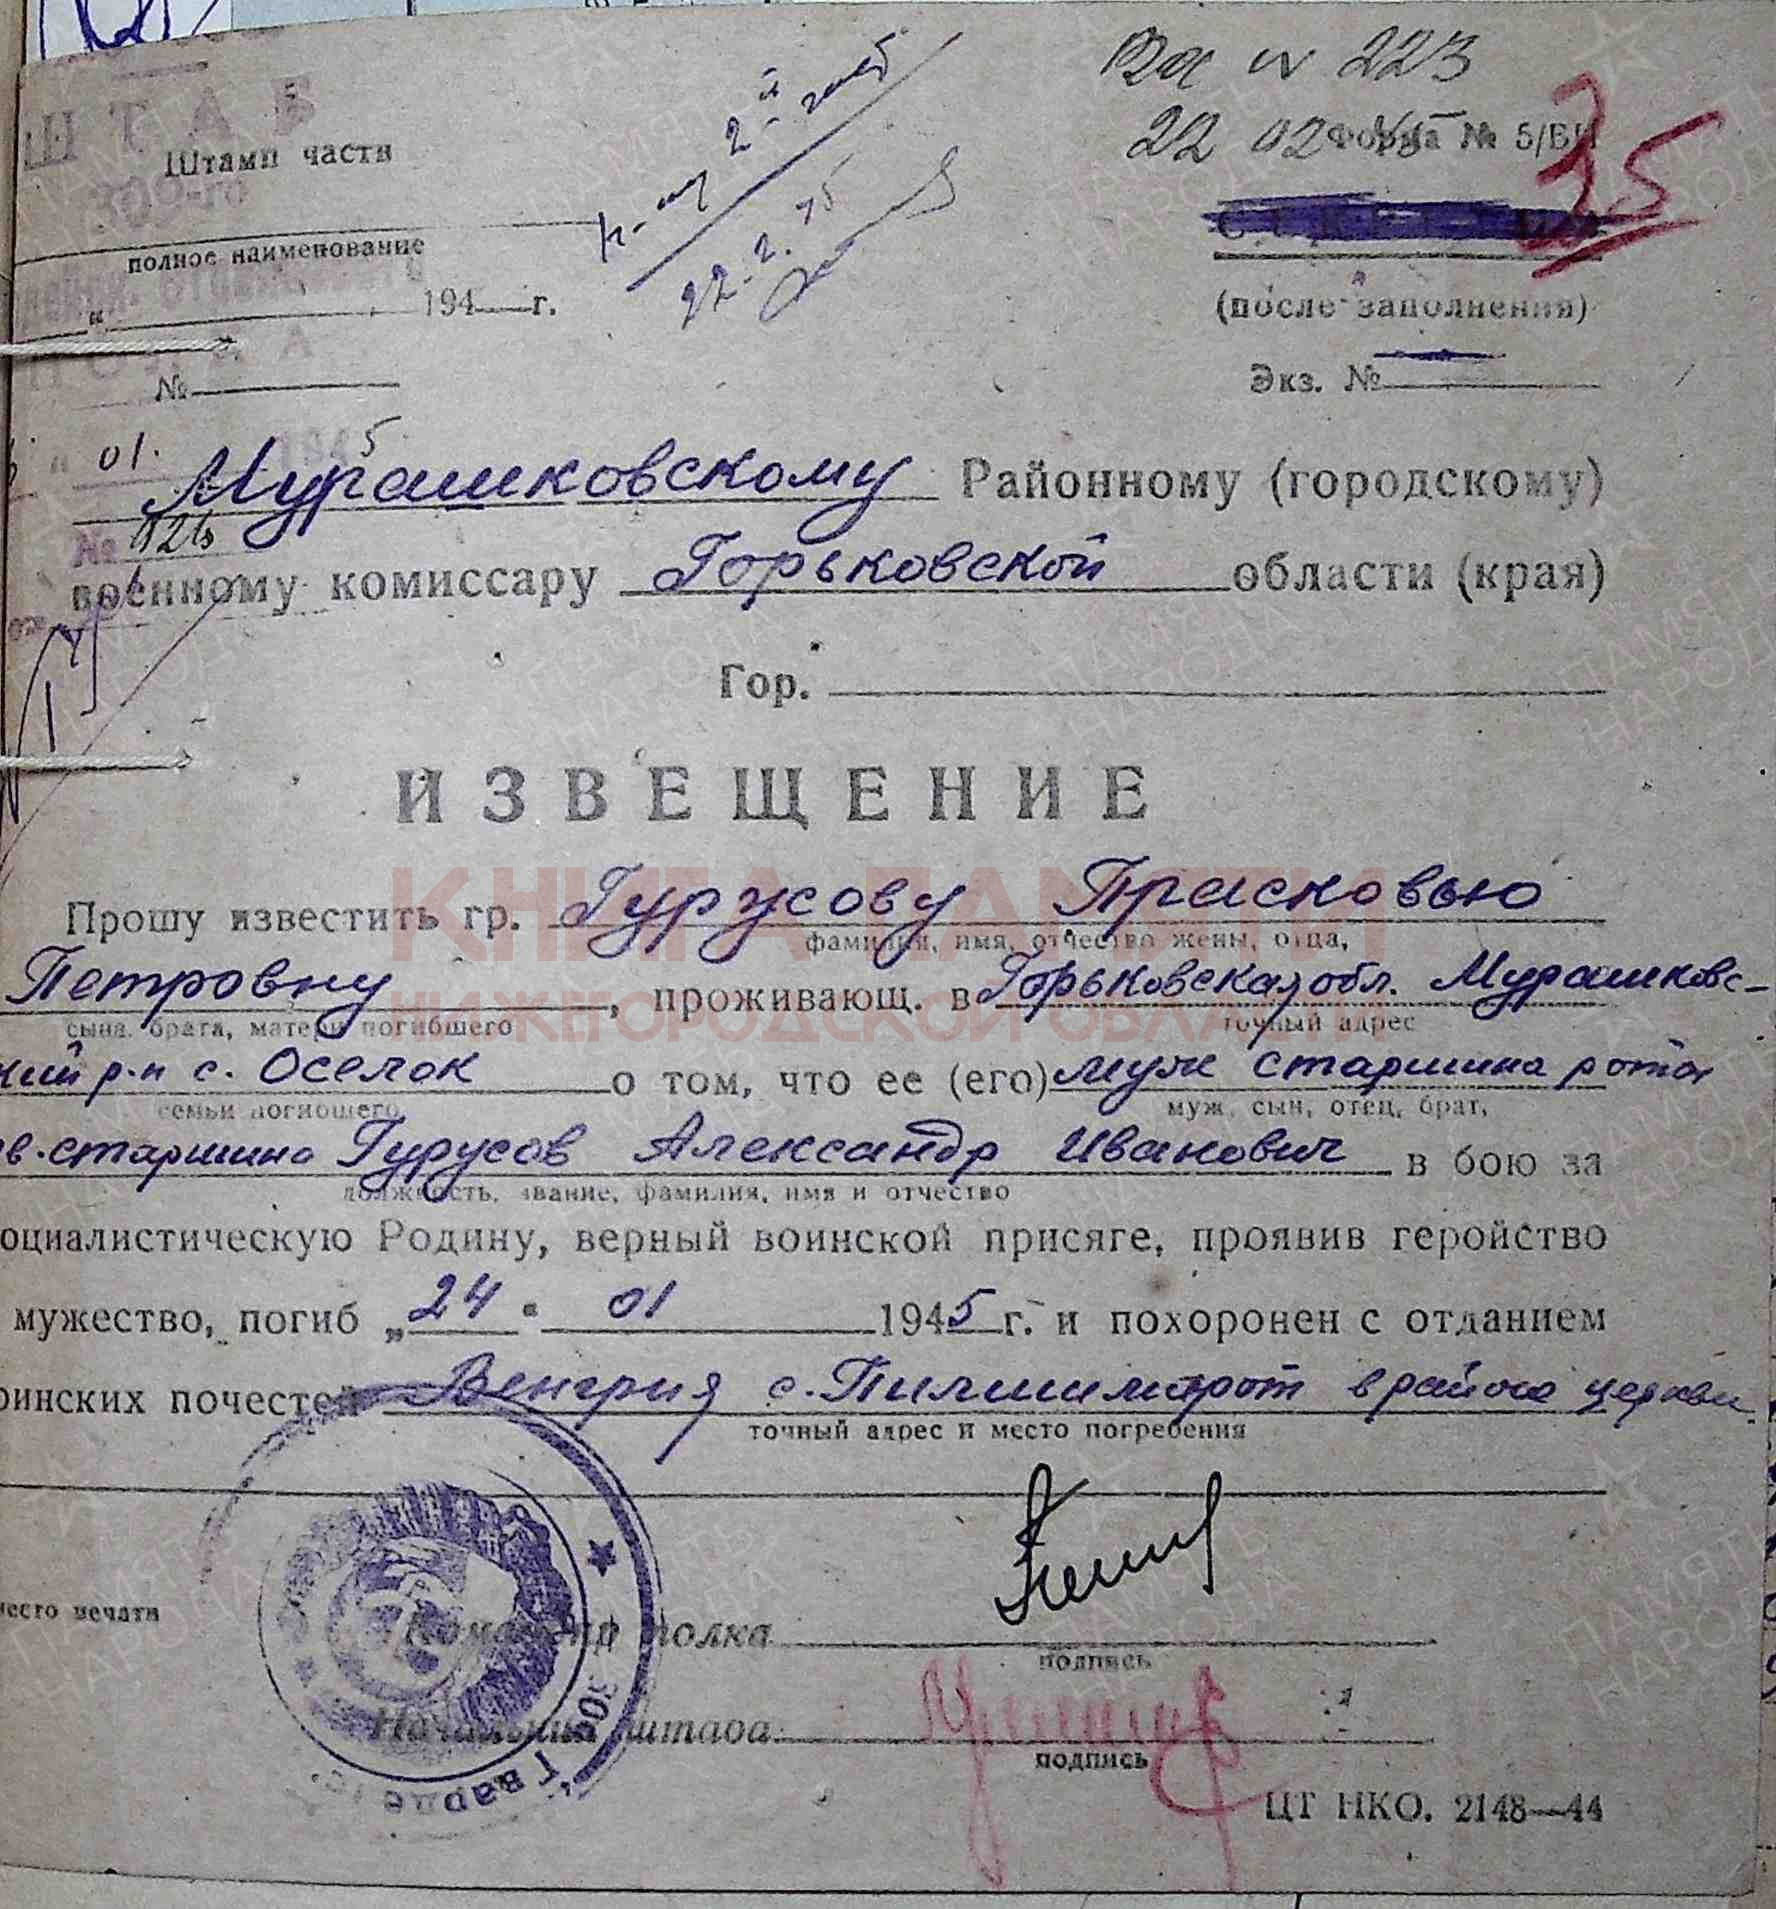 Вх № 223
22 02 45
Форма № 5/ВП
35
ШТАБ
Штамп части
309-го
полное наименование
" 194 г.
27.2.45
(после заполнения)
Экз. №
№
01. 1945
Мурашковскому Районному (городскому)
№
военному комиссару Горьковской области (края)
Гор.
ИЗВЕЩЕНИЕ
КНИГА ПАМЯТИ
Прошу известить гр. Гурусову Прасковью
фамилия, имя, отчество жены, отца,
Петровну, проживающ. в Горьковская обл. Мурашковс-
НИЖЕГОРОДСКОЙ ОБЛАСТИ
сына, брата, матери погибшего точный адрес
кий р-н с. Оселок о том, что ее (его) муж старшина роты
семьи погибшего муж, сын, отец, брат,
гв. старшина Гурусов Александр Иванович в бою за
должность, звание, фамилия, имя и отчество
социалистическую Родину, верный воинской присяге, проявив геройство
мужество, погиб „24" 01 1945 г. и похоронен с отданием
воинских почестей Венгрия с. Пилишмарот в районе церкви.
точный адрес и место погребения
место печати
Командир полка
подпись
Начальник штаба
подпись
309 Гварде
ЦТ НКО. 2148—44
ПАМЯТЬ НАРОДА